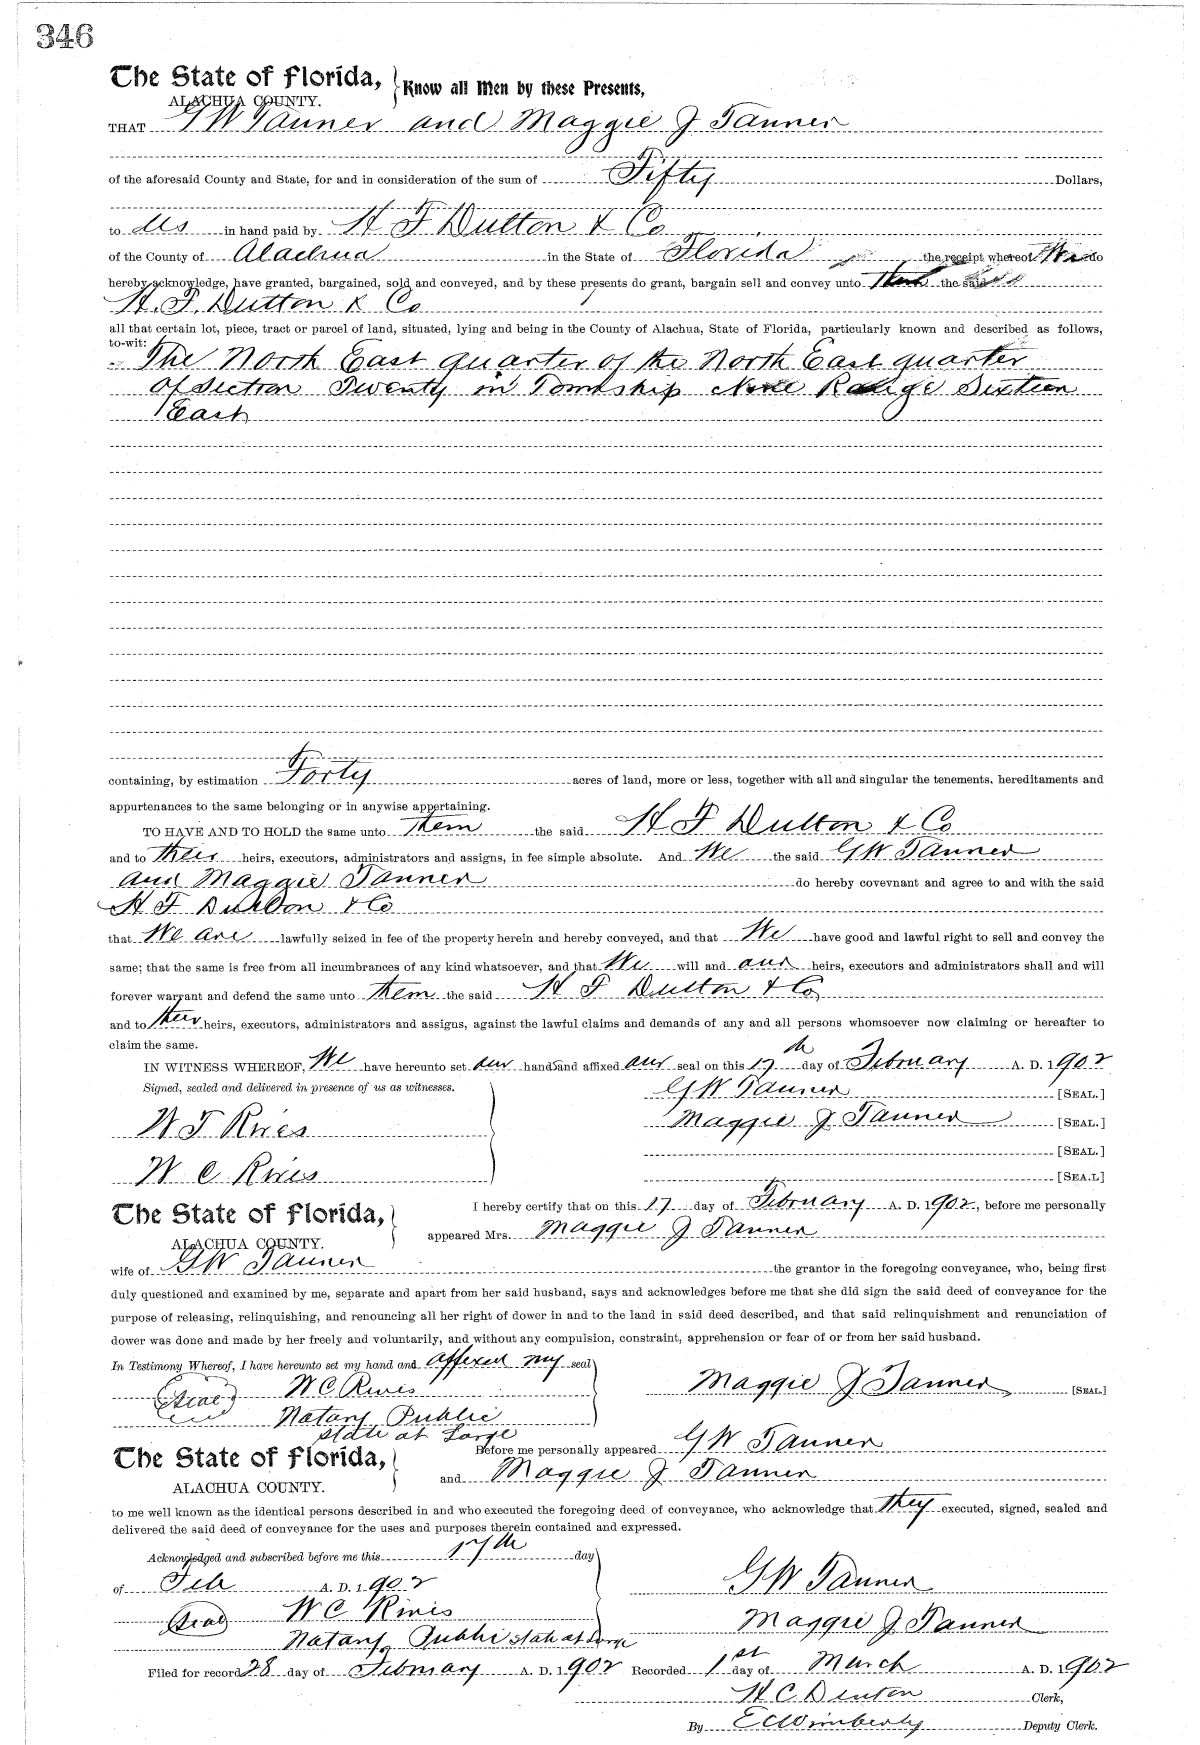 346
The State of Florida, Know all Men by these Presents,
ALACHUA COUNTY.
THAT G W Tanner and Maggie J Tanner
of the aforesaid County and State, for and in consideration of the sum of Fifty Dollars,
to us in hand paid by H F Dutton & Co
of the County of Alachua in the State of Florida the receipt whereof We do
hereby acknowledge, have granted, bargained, sold and conveyed, and by these presents do grant, bargain sell and convey unto the said
H. F. Dutton & Co
all that certain lot, piece, tract or parcel of land, situated, lying and being in the County of Alachua, State of Florida, particularly known and described as follows,
to-wit:
The North East quarter of the North East quarter
of Section Twenty in Township Nine Range Sixteen
East
containing, by estimation Forty acres of land, more or less, together with all and singular the tenements, hereditaments and
appurtenances to the same belonging or in anywise appertaining.
TO HAVE AND TO HOLD the same unto them the said H F Dutton & Co
and to their heirs, executors, administrators and assigns, in fee simple absolute. And We the said G W Tanner
and Maggie Tanner do hereby covevnant and agree to and with the said
H F Dutton & Co
that We are lawfully seized in fee of the property herein and hereby conveyed, and that We have good and lawful right to sell and convey the
same; that the same is free from all incumbrances of any kind whatsoever, and that We will and our heirs, executors and administrators shall and will
forever warrant and defend the same unto them the said H F Dutton & Co
and to their heirs, executors, administrators and assigns, against the lawful claims and demands of any and all persons whomsoever now claiming or hereafter to
claim the same.
IN WITNESS WHEREOF, We have hereunto set our hands and affixed our seal on this 17th day of February A. D. 1902
Signed, sealed and delivered in presence of us as witnesses. G W Tanner [SEAL.]
W T Rives Maggie J Tanner [SEAL.]
[SEAL.]
W C Rives [SEA.L]
The State of Florida, I hereby certify that on this 17 day of February A. D. 1902, before me personally
ALACHUA COUNTY. appeared Mrs. Maggie J Tanner
wife of G W Tanner the grantor in the foregoing conveyance, who, being first
duly questioned and examined by me, separate and apart from her said husband, says and acknowledges before me that she did sign the said deed of conveyance for the
purpose of releasing, relinquishing, and renouncing all her right of dower in and to the land in said deed described, and that said relinquishment and renunciation of
dower was done and made by her freely and voluntarily, and without any compulsion, constraint, apprehension or fear of or from her said husband.
In Testimony Whereof, I have hereunto set my hand and affixed my seal
Seal W C Rives Maggie J Tanner [SEAL.]
Notary Public
state at Large
The State of Florida, Before me personally appeared G W Tanner
ALACHUA COUNTY. and Maggie J Tanner
to me well known as the identical persons described in and who executed the foregoing deed of conveyance, who acknowledge that they executed, signed, sealed and
delivered the said deed of conveyance for the uses and purposes therein contained and expressed.
Acknowledged and subscribed before me this 17th day
of Feb A. D. 1902 G W Tanner
Seal W C Rives Maggie J Tanner
Notary Public state at Large
Filed for record 28 day of February A. D. 1902 Recorded 1st day of March A. D. 1902
H C Denton Clerk,
By E C Wimberly Deputy Clerk.